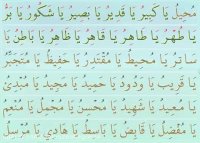 مُحِيلُ يَا كَبِيرُ يَا قَدِيرُ يَا بَصِيرُ يَا شَكُورُ يَا بَرُّ
يَا طُهْرُ يَا طَاهِرُ يَا قَاهِرُ يَا ظَاهِرُ يَا بَاطِنُ يَا
سَاتِرُ يَا مُحِيطُ يَا مُقْتَدِرُ يَا حَفِيظُ يَا مُتَجَبِّرُ
يَا قَرِيبُ يَا وَدُودُ يَا حَمِيدُ يَا مَجِيدُ يَا مُبْدِئُ
يَا مُعِيدُ يَا شَهِيدُ يَا مُحْسِنُ يَا مُجْمِلُ يَا مُنْعِمُ
يَا مُفْضِلُ يَا قَابِضُ يَا بَاسِطُ يَا هَادِي يَا مُرْسِلُ